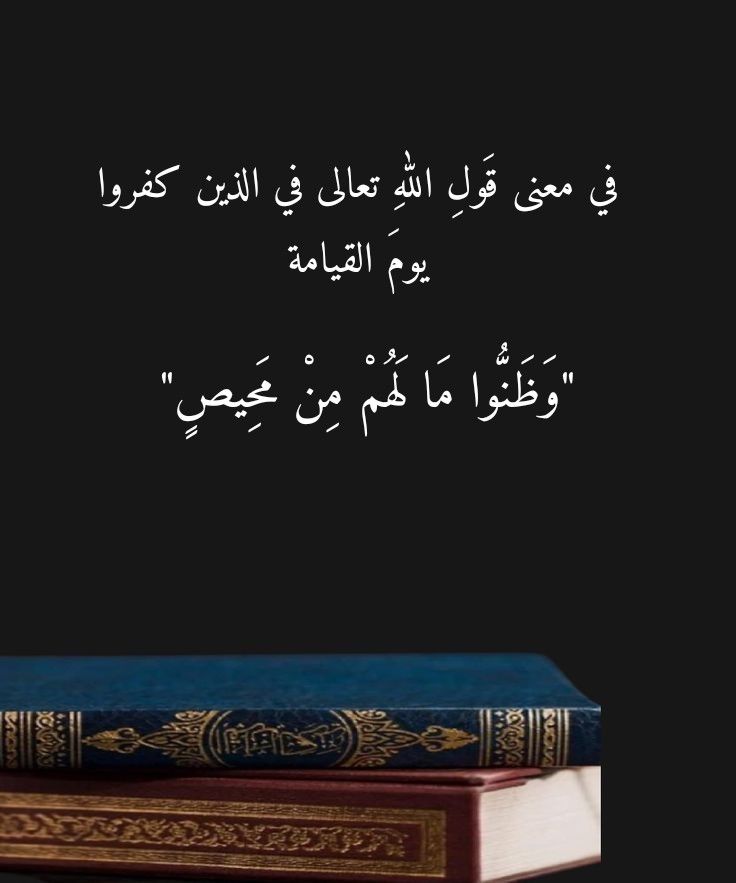 في معنى قَولِ اللهِ تعالى في الذين كفروا
يومَ القيامة
"وَظَنُّوا مَا لَهُمْ مِنْ مَحِيصٍ"